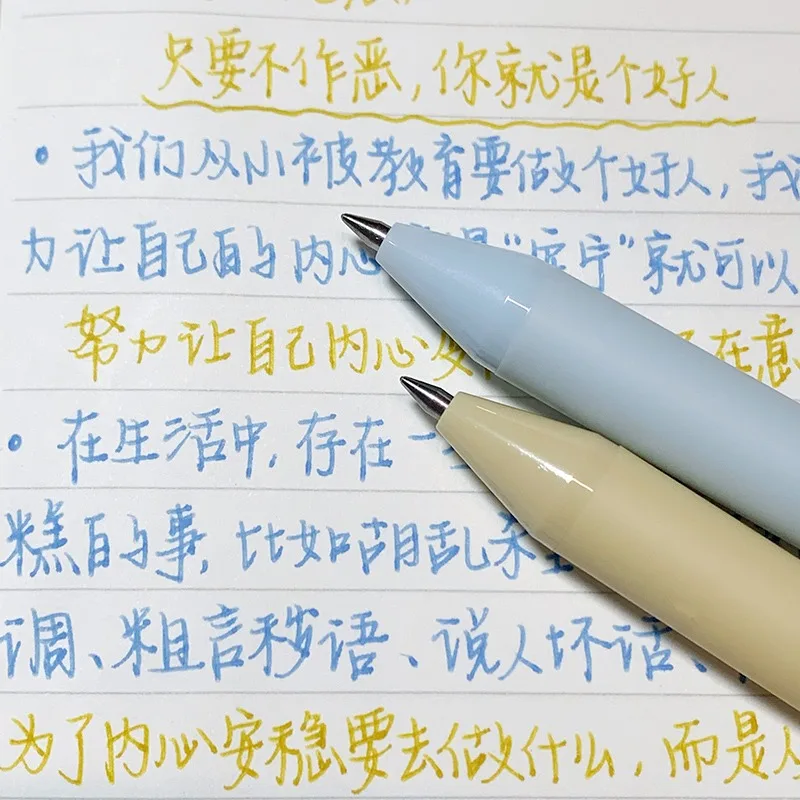 只要不作恶,你就是个好人
• 我们从小被教育要做个好人,我
力让自己的内心 "安宁"就可以
努力让自己内心安 在意
• 在生活中,存在一
糕的事,比如胡乱杀
调、粗言秽语、说人坏话、
为了内心安稳要去做什么,而是